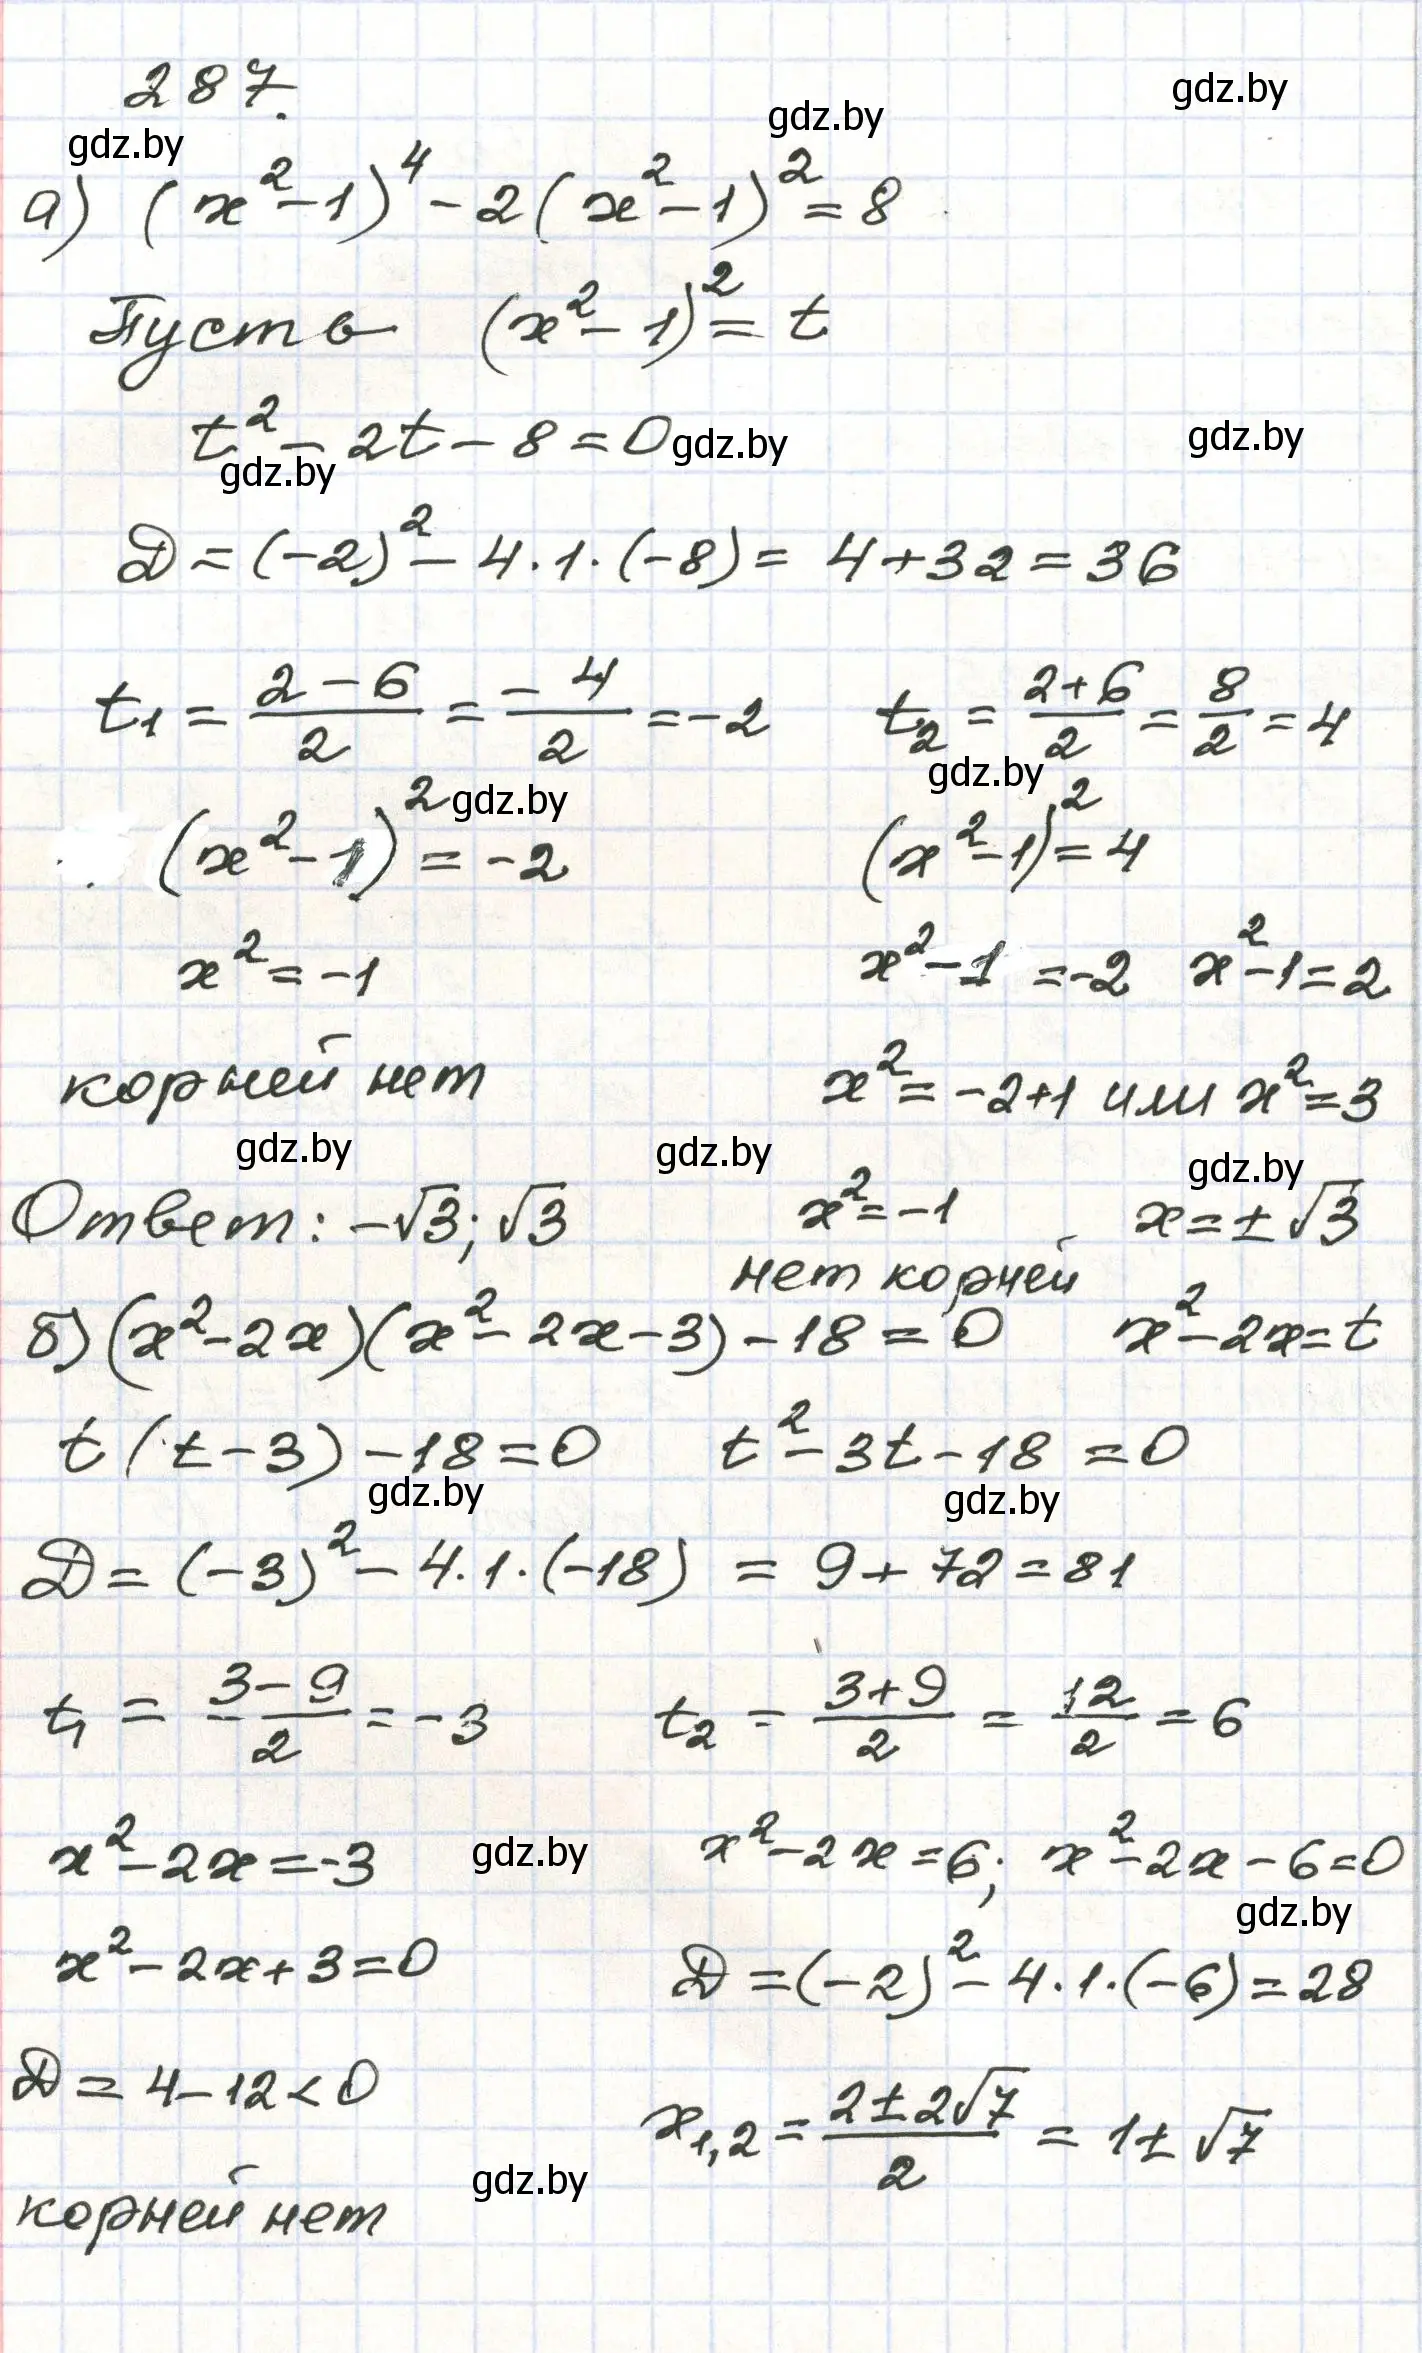 287.
gdz.by
gdz.by
gdz.by
а) (x²-1)⁴ - 2(x²-1)² = 8
Пусть (x²-1)² = t
t² - 2t - 8 = 0
gdz.by
gdz.by
gdz.by
Д = (-2)² - 4·1·(-8) = 4+32 = 36
t₁ = (2-6)/2 = -4/2 = -2 t₂ = (2+6)/2 = 8/2 = 4
gdz.by
gdz.by
(x²-1)² = -2 (x²-1)² = 4
x² = -1 x²-1 = -2 x²-1 = 2
корней нет x² = -2+1 или x² = 3
gdz.by
gdz.by
gdz.by
Ответ: -√3; √3 x² = -1 x = ±√3
нет корней
б) (x²-2x)(x²-2x-3)-18=0 x²-2x=t
t(t-3)-18=0 t²-3t-18=0
gdz.by
gdz.by
Д = (-3)² - 4·1·(-18) = 9+72 = 81
t₁ = (3-9)/2 = -3 t₂ = (3+9)/2 = 12/2 = 6
x²-2x=-3 gdz.by x²-2x=6; x²-2x-6=0
gdz.by
x²-2x+3=0 Д = (-2)² - 4·1·(-6) = 28
Д = 4-12<0 x₁,₂ = (2±2√7)/2 = 1±√7
корней нет gdz.by